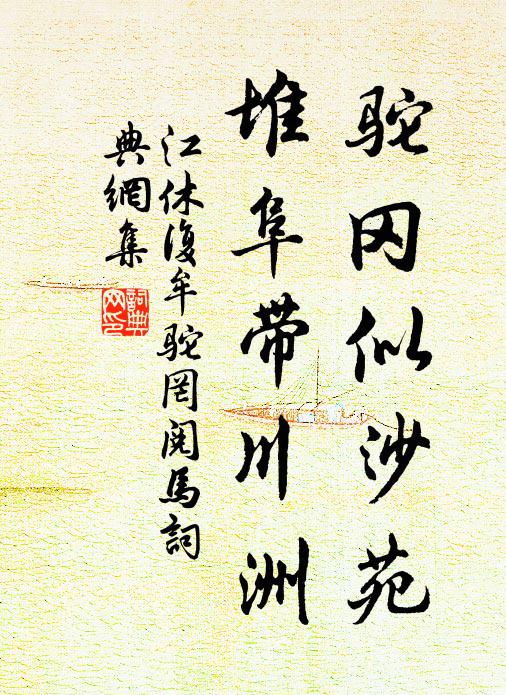 驼冈似沙苑
堆阜带川洲
江休復牟驼岡阅馬詞
典網集
詞典
网印